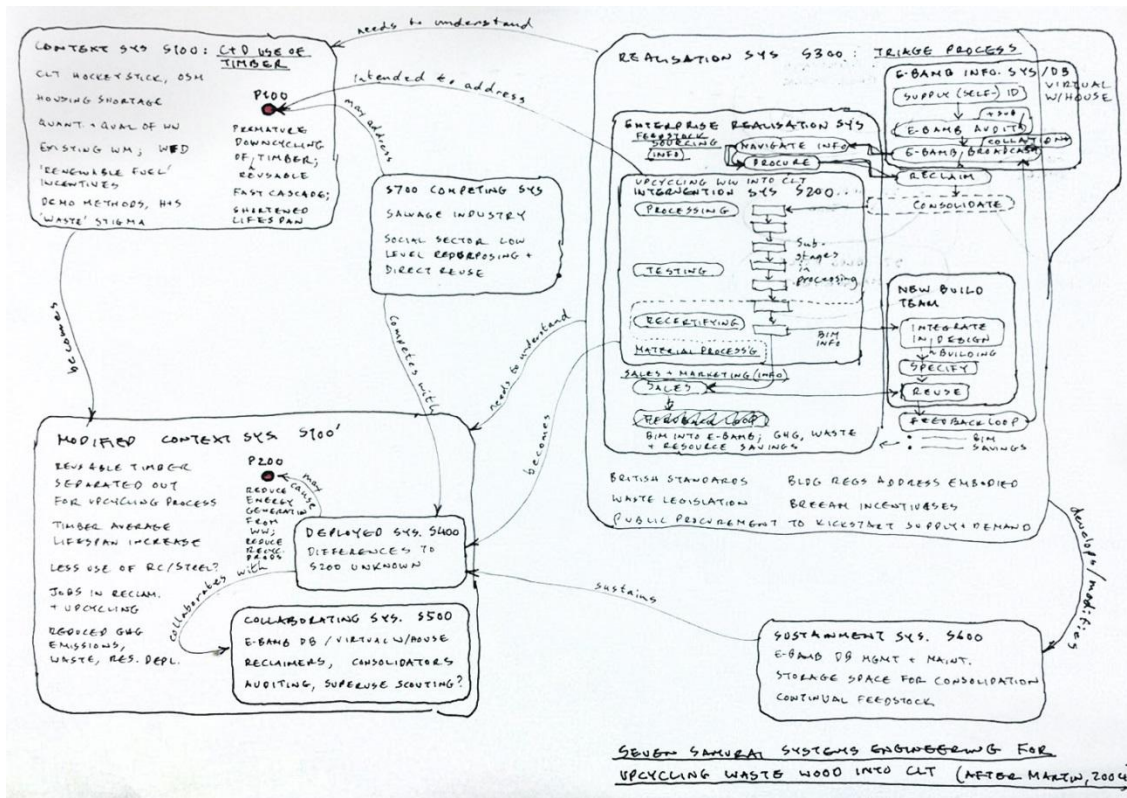 CONTEXT SYS S100: C+D USE OF
TIMBER
CLT HOCKEYSTICK, OSM
HOUSING SHORTAGE
QUANT + QUAL OF WW
EXISTING WM; WED
'RENEWABLE FUEL'
INCENTIVES
DEMO METHODS, H+S
'WASTE' STIGMA
P100
PREMATURE
DOWNCYCLING
OF TIMBER;
REUSABLE
FAST CASCADE;
SHORTENED
LIFESPAN
needs to understand
Intended to address
may address
S700 COMPETING SYS
SALVAGE INDUSTRY
SOCIAL SECTOR LOW
LEVEL REPURPOSING +
DIRECT REUSE
becomes
competes with
needs to understand
becomes
REALISATION SYS S300: TRIAGE PROCESS
E-BAMB INFO. SYS/DB
VIRTUAL
W/HOUSE
SUPPLY (SELF-) ID
E-BAMB AUDIT
E-BAMB, BROADCAST
RECLAIM
CONSOLIDATE
ENTERPRISE REALISATION SYS
FEEDSTOCK
SOURCING
(INFO)
NAVIGATE INFO
PROCURE
UPCYCLING WW INTO CLT
INTERVENTION SYS S200
PROCESSING
TESTING
RECERTIFYING
MATERIAL PROCESS'G
Sub-
stages
in
processing
BIM
INFO
NEW BUILD
TEAM
INTEGRATE
IN DESIGN
~ BUILDING
SPECIFY
REUSE
FEEDBACK LOOP
BIM
SAVINGS
SALES + MARKETING (INFO)
SALES
FEEDBACK LOOP
BIM INTO E-BAMB; GHG, WASTE
+ RESOURCE SAVINGS
BRITISH STANDARDS
BLDG REGS ADDRESS EMBODIED
WASTE LEGISLATION
BREEAM INCENTIVISES
PUBLIC PROCUREMENT TO KICKSTART SUPPLY + DEMAND
develops/modifies
MODIFIED CONTEXT SYS S100'
REUSABLE TIMBER
SEPARATED OUT
FOR UPCYCLING PROCESS
TIMBER AVERAGE
LIFESPAN INCREASE
LESS USE OF RC/STEEL?
JOBS IN RECLAM.
+ UPCYCLING
REDUCED GHG
EMISSIONS,
WASTE, RES. DEPL.
P200
REDUCE
ENERGY
GENERATIN
FROM
WW; REDUCE
may cause
collaborates with
DEPLOYED SYS. S400
DIFFERENCES TO
S200 UNKNOWN
COLLABORATING SYS. S500
E-BAMB DB / VIRTUAL W/HOUSE
RECLAIMERS, CONSOLIDATORS
AUDITING, SUPERUSE SCOUTING?
sustains
SUSTAINMENT SYS. S600
E-BAMB DB MGMT + MAINT.
STORAGE SPACE FOR CONSOLIDATION
CONTINUAL FEEDSTOCK
SEVEN SAMURAI SYSTEMS ENGINEERING FOR
UPCYCLING WASTE WOOD INTO CLT (AFTER MARTIN, 2004)